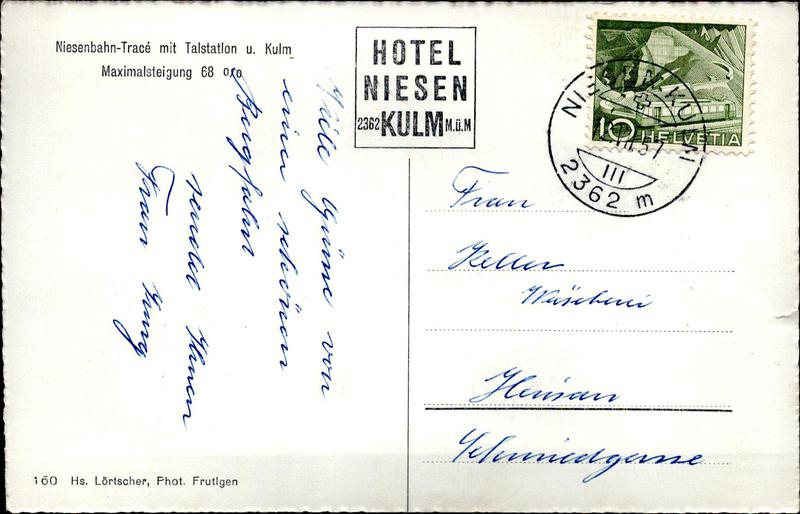 Niesenbahn-Tracé mit Talstation u. Kulm
Maximalsteigung 68 o/o
HOTEL
NIESEN
2362 KULM M.ü.M
NIESEN-KULM
57
III
2362 m
10 HELVETIA
Viele Grüsse von
einer schönen
Bergfahrt
sendet Ihnen
Frau
Frau
Keller
Wäscherei
Herisau
Schmiedgasse
160 Hs. Lörtscher, Phot. Frutigen